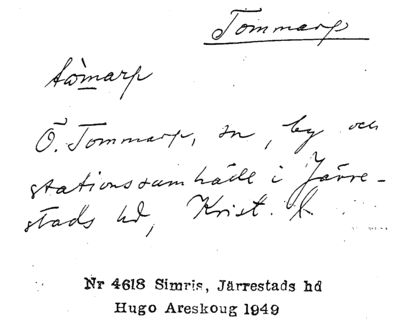 Tommarp
tåmarp
Ö. Tommarp, sn, by och
stationssamhälle i Järre-
stads hd, Krist. l.
Nr 4618 Simris, Järrestads hd
Hugo Areskoug 1949